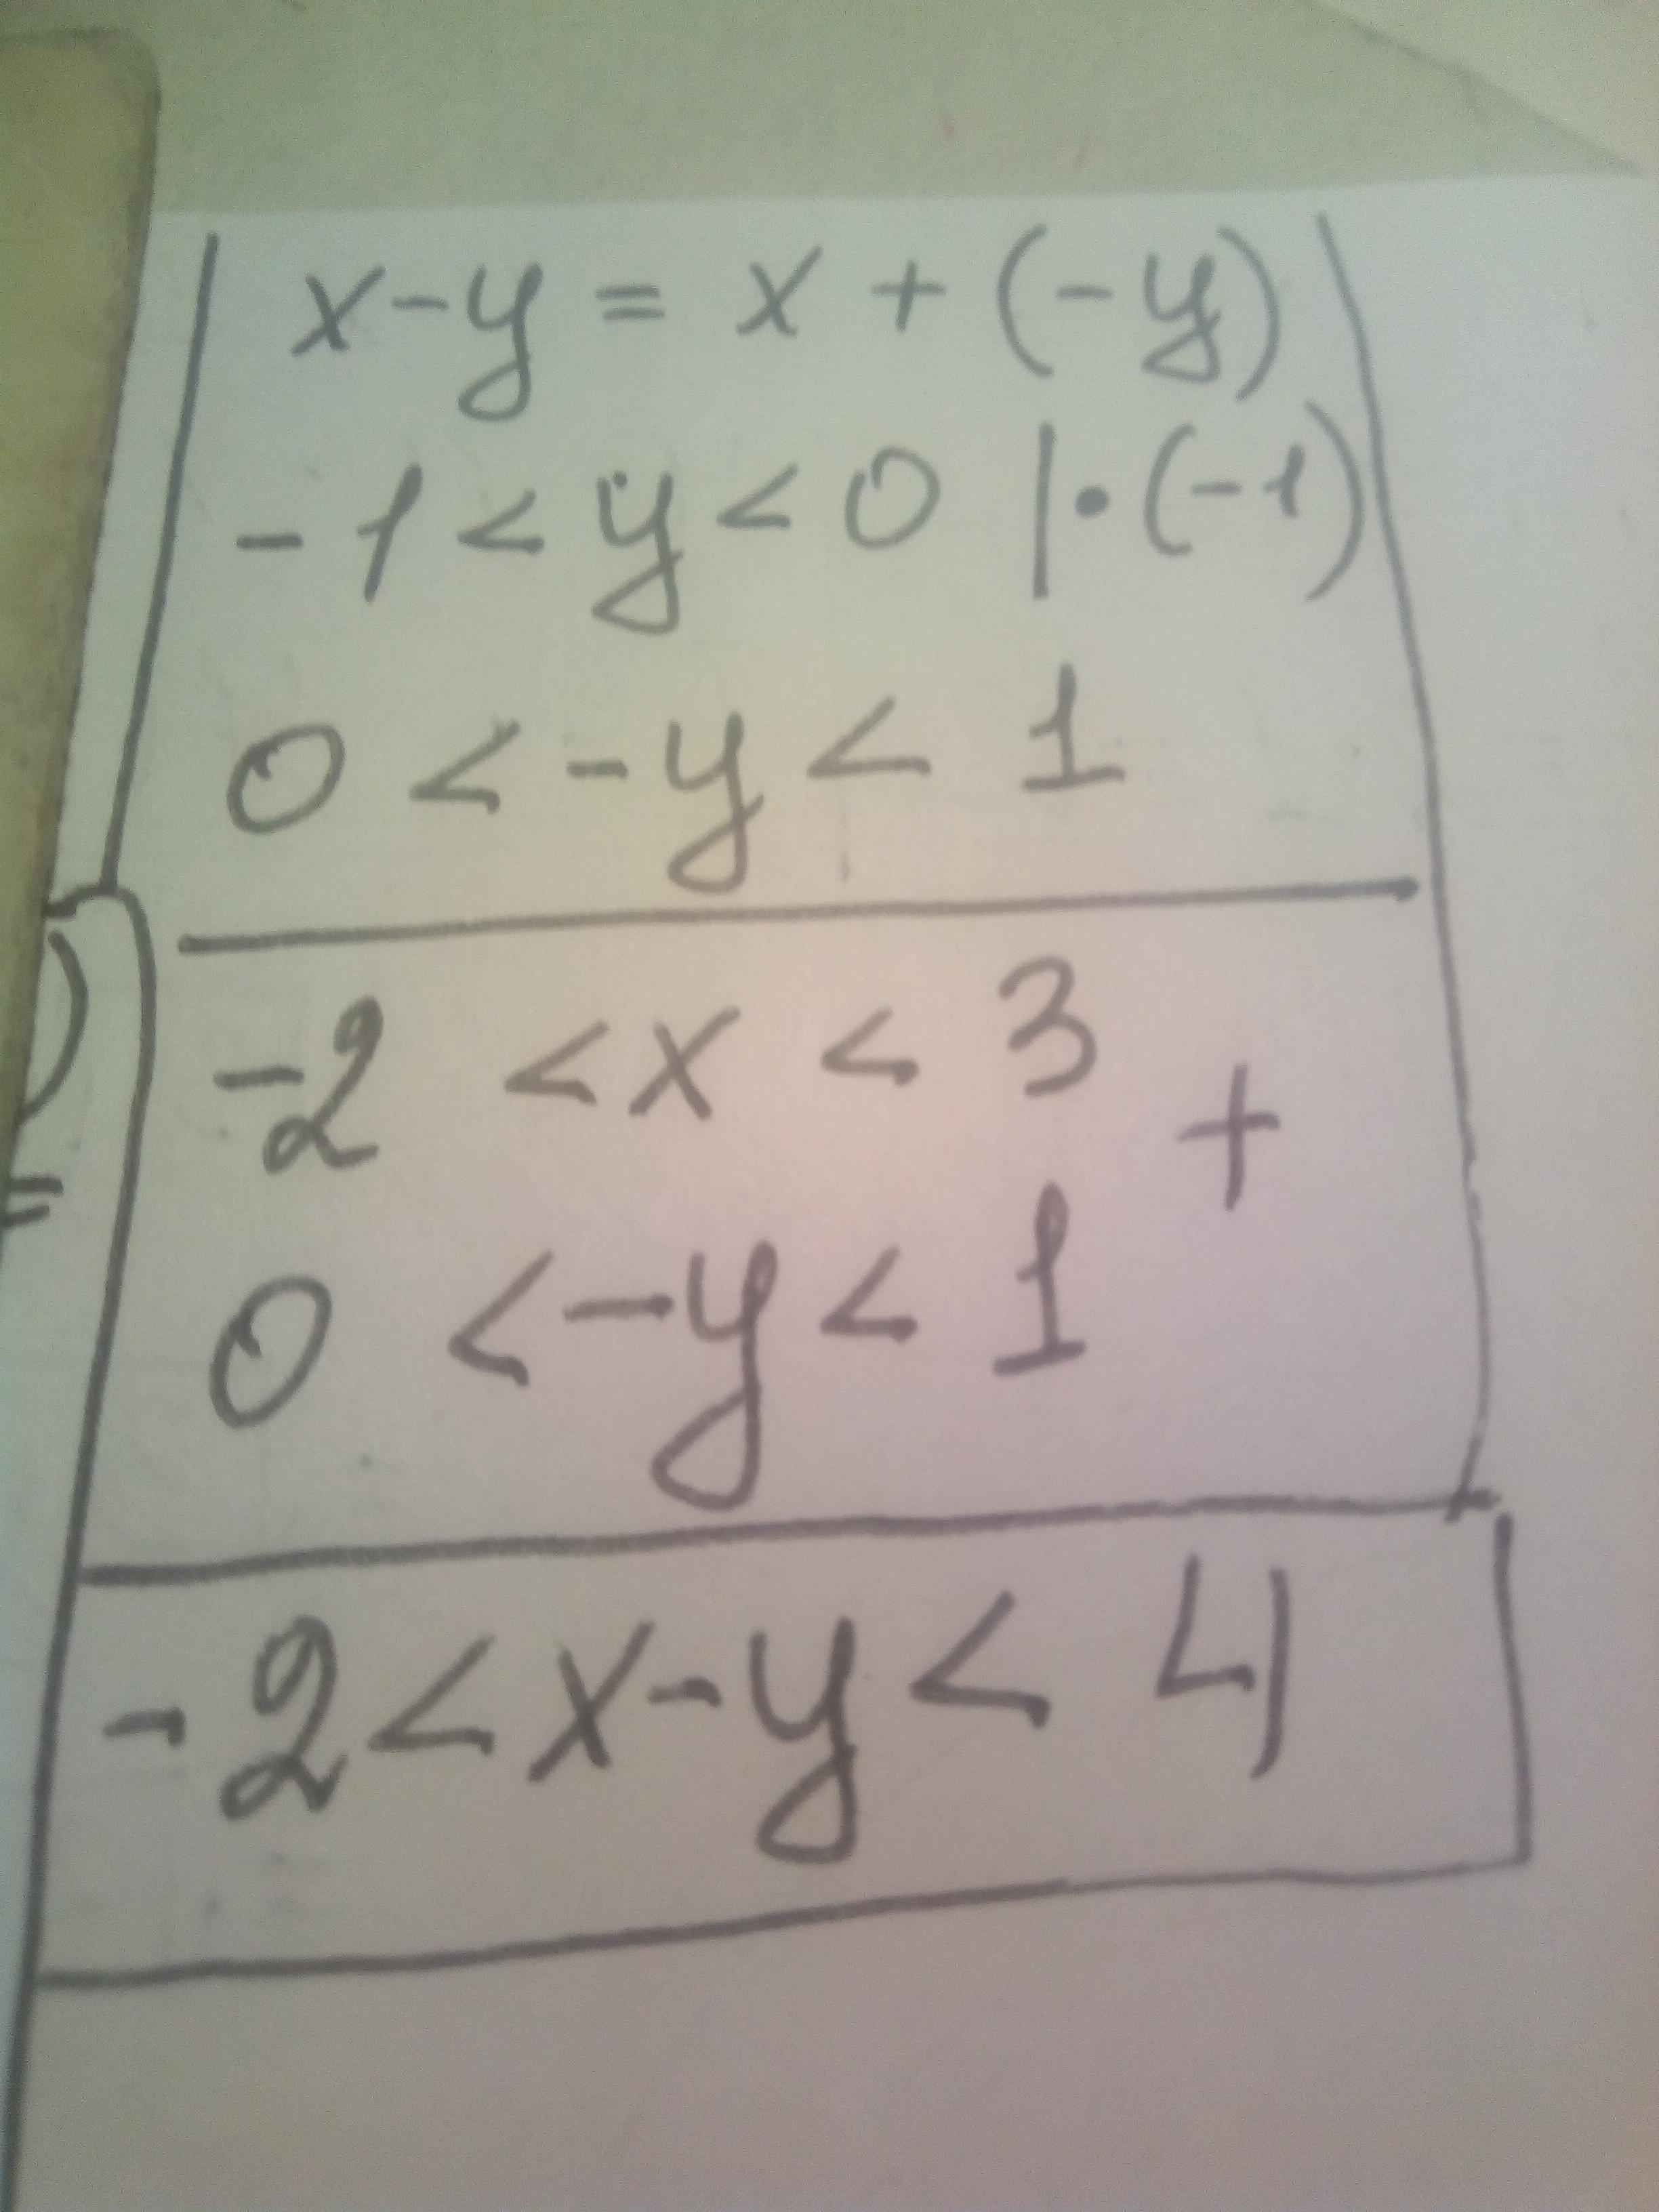 x-y = x + (-y)
-1 < y < 0 | • (-1)
0 < -y < 1
-2 < x < 3
+
0 < -y < 1
)
=
-2 < x-y < 4